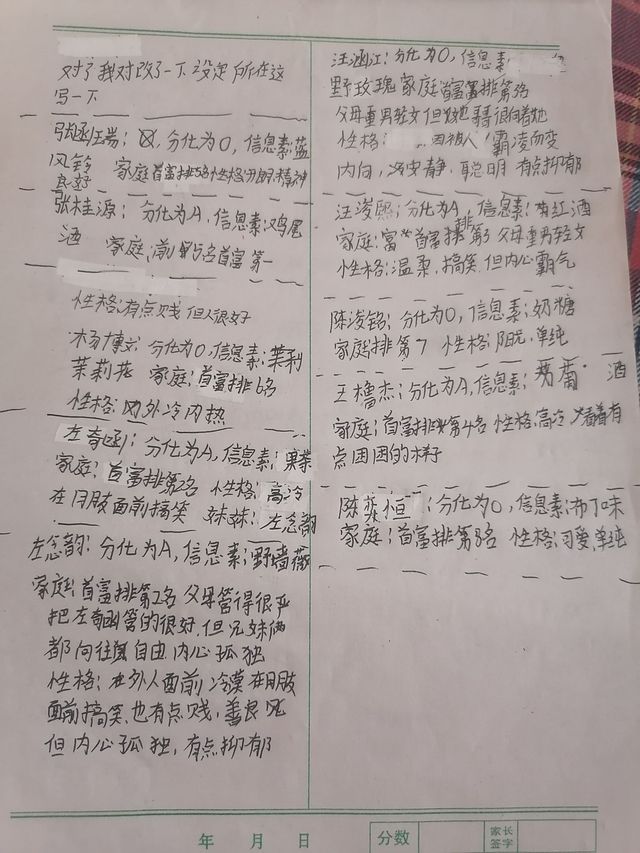 对了我对改了一下设定所在这
写一下
张函瑞: 分化为O, 信息素:蓝
风铃 家庭首富排5名性格:开朗精神
良好
张桂源: 分化为A, 信息素:鸡尾
酒 家庭:前第5名首富第一
性格:有点贱 但人很好
杨博文: 分化为O, 信息素:茉莉
茉莉花 家庭:首富排6名
性格: 外冷内热
左奇函: 分化为A, 信息素:果茶
家庭:首富排第2名 性格:高冷
在朋友面前搞笑 妹妹:左念韵
左念韵: 分化为A, 信息素:野蔷薇
家庭:首富排第2名 父母管得很严
把左奇函管的很好, 但兄妹俩
都向往自由, 内心孤独
性格: 在外人面前冷漠 在朋友
面前搞笑, 也有点贱, 善良
但内心孤独, 有点抑郁
汪涵江: 分化为O, 信息素:
野玫瑰 家庭:首富排第3名
父母重男轻女 但 哥哥很向着她
性格: 因被人霸凌而变
内向, 安静, 聪明 有点抑郁
汪浚熙: 分化为A, 信息素: 红酒
家庭: 首富排第3 父母重男轻女
性格:温柔, 搞笑, 但内心霸气
陈浚铭: 分化为O, 信息素:奶糖
家庭排第7 性格:阳光, 单纯
王橹杰: 分化为A, 信息素: 葡萄 酒
家庭:首富排第4名 性格:高冷 看着有
点困困的样子
陈奕恒: 分化为O, 信息素:布丁味
家庭:首富排第8名 性格:可爱, 单纯
年 月 日 分数 家长
签字